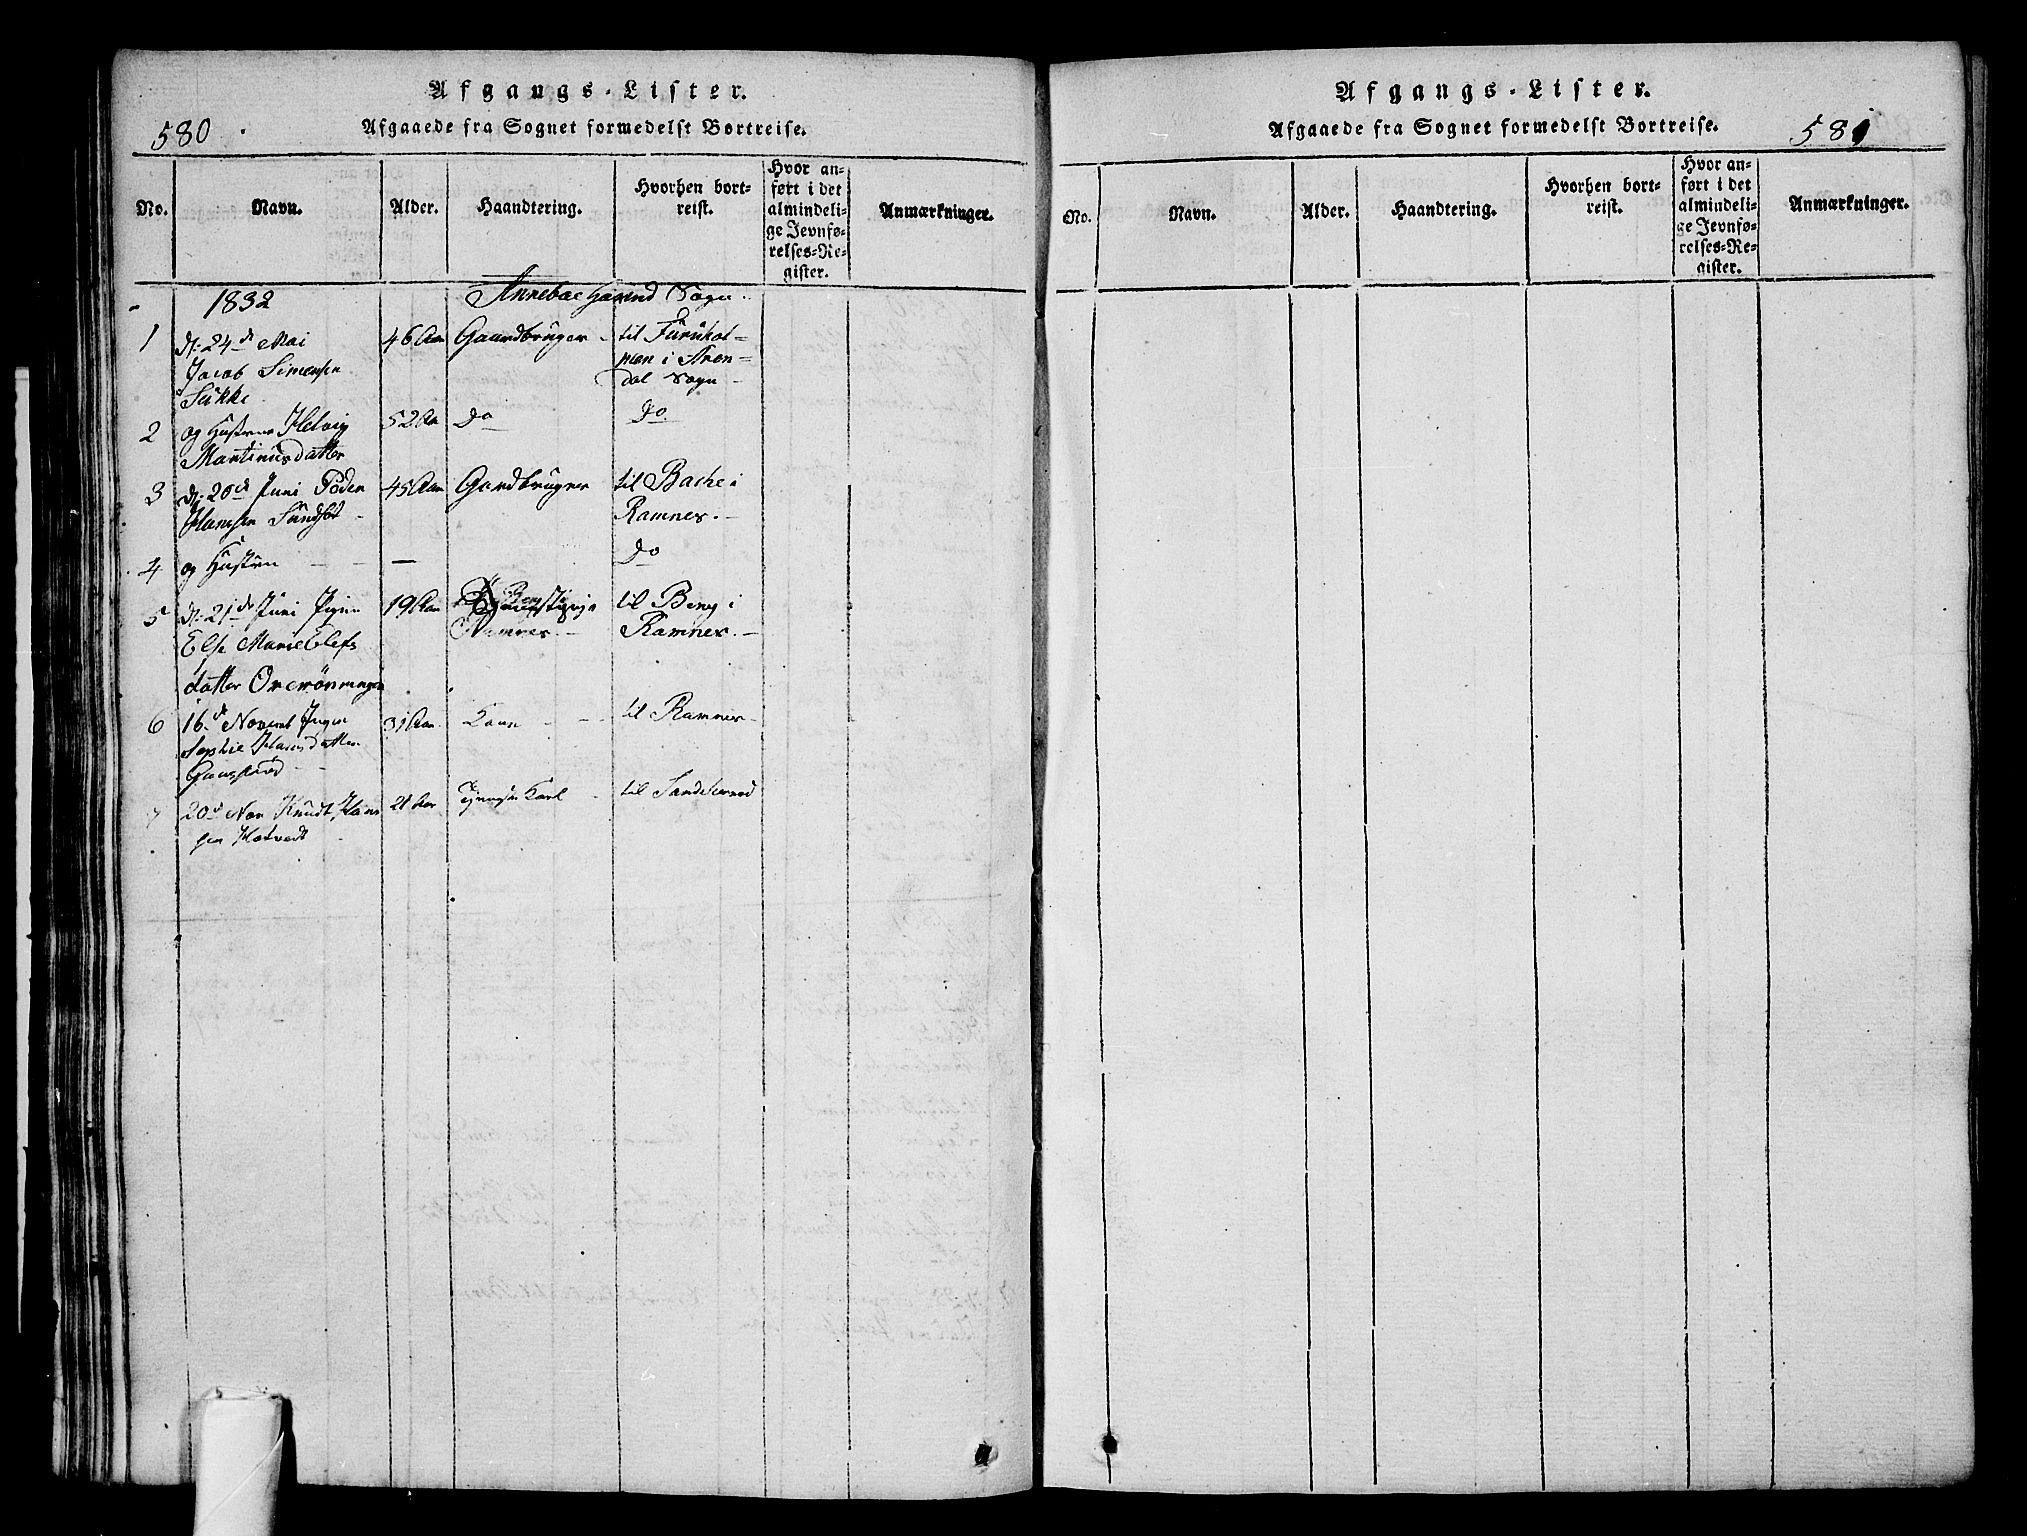 Afgangs-Lister.
580
Afgaaede fra Sognet formedelst Bortreise.
No.
Navn.
Alder.
Haandtering.
Hvorhen bort-
reist.
Hvor an-
ført i det
almindeli-
ge Jevnfø-
relses-Re-
gister.
Anmærkninger.
1832
Sogn
1
d: 24de Mai
Jacob Simensen
46 Aar
Gaardbruger
til
i Aren-
dal Sogn
2
og Hustrue Helvig
Martinusdatter
52 Aar
do
do
3
d: 20de Juni
Hansen
45 Aar
Gardbruger
til Bache i
Ramnes.
4
og Hustru
—
do
5
d: 21de Juni Pigen
Else Marie Olefs
datter
19 Aar
Ramnes.
til Berg i
Ramnes.
6
16de Novemb
Sophie Hansdatter
31 Aar
Kone
til Ramnes
7
20de Nov Knudt Han
sen
21 Aar
Karl
til
Afgangs-Lister.
Afgaaede fra Sognet formedelst Bortreise.
581
No.
Navn.
Alder.
Haandtering.
Hvorhen bort-
reist.
Hvor an-
ført i det
almindeli-
ge Jevnfø-
relses-Re-
gister.
Anmærkninger.